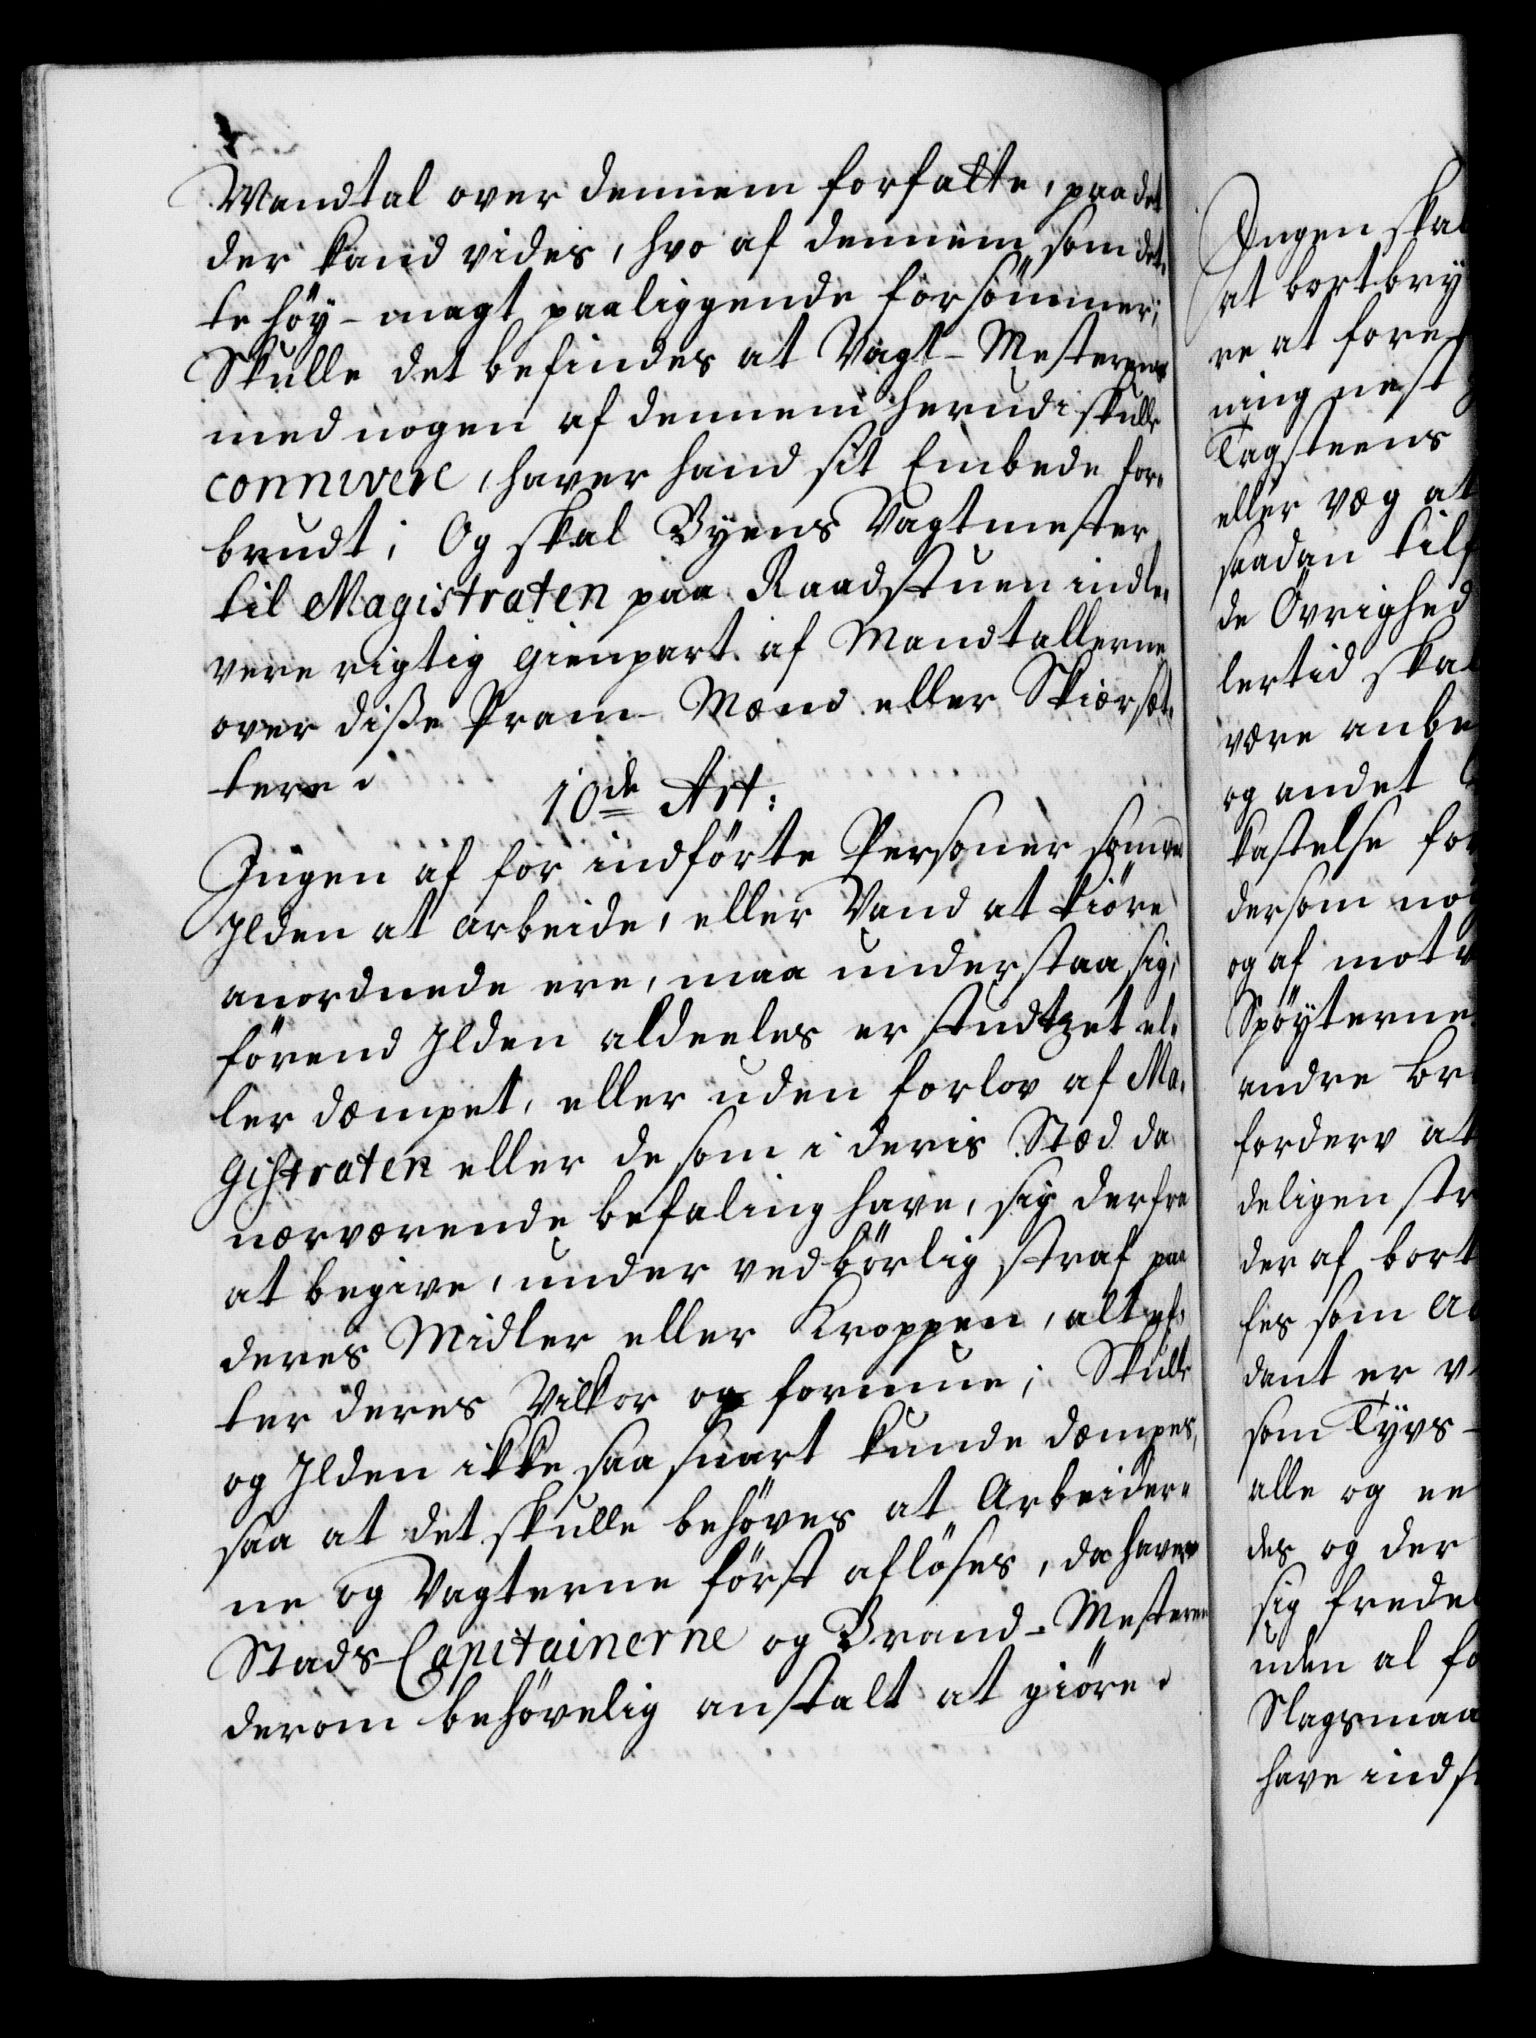 Mandtal over dennem forfatte, paa det
der kand vides, hvo af dennem som det-
te höy-magt paaliggende forsömmer;
Skulle det befindes at Vagt-Mesteren
med nogen af dennem herudi skulle
connivere, haver hand sit Embede for-
brudt; Og skal Byens Vagtmester
til Magistraten paa Raadstuen indle-
vere rigtig Gienpart af Mandtallerne
over diße Pram-Mænd eller Skiærsöt-
tere.
10de Art:
Ingen af for indförte Personer som ved
Ilden at arbeide, eller Vand at kiöre
anordnede ere, maa understaa sig,
förend Ilden aldeeles er studtzet el-
ler dæmpet, eller uden forlov af Ma-
gistraten eller de som i deris Stæd da
nærværende befaling have, sig derfra
at begive, under vedbörlig straf paa
deres Midler eller Kroppen, alt ef-
ter deres Vilkor og formue; Skulle
og Ilden ikke saa snart kunde dæmpes,
saa at det skulle behöves at Arbeider-
ne og Vagterne först aflöses, da haver
Stads-Capitainerne og Brand-Mesteren
derom behövelig anstalt at giöre.
Ingen skal
at bortbry
re at fore
ning nest
Tagsteens
eller væg at
saadan tilf
de Övrighed
lertid skal
være anbe
og andet
kastelse for
dersom nog
og af motv
Spöyterne
andre br
forderv at
deligen str
der af bort
fes som a
dant er v
som Tyvs-
alle og en
des og der
sig fredel
uden al fo
Slagsmaa
have inds